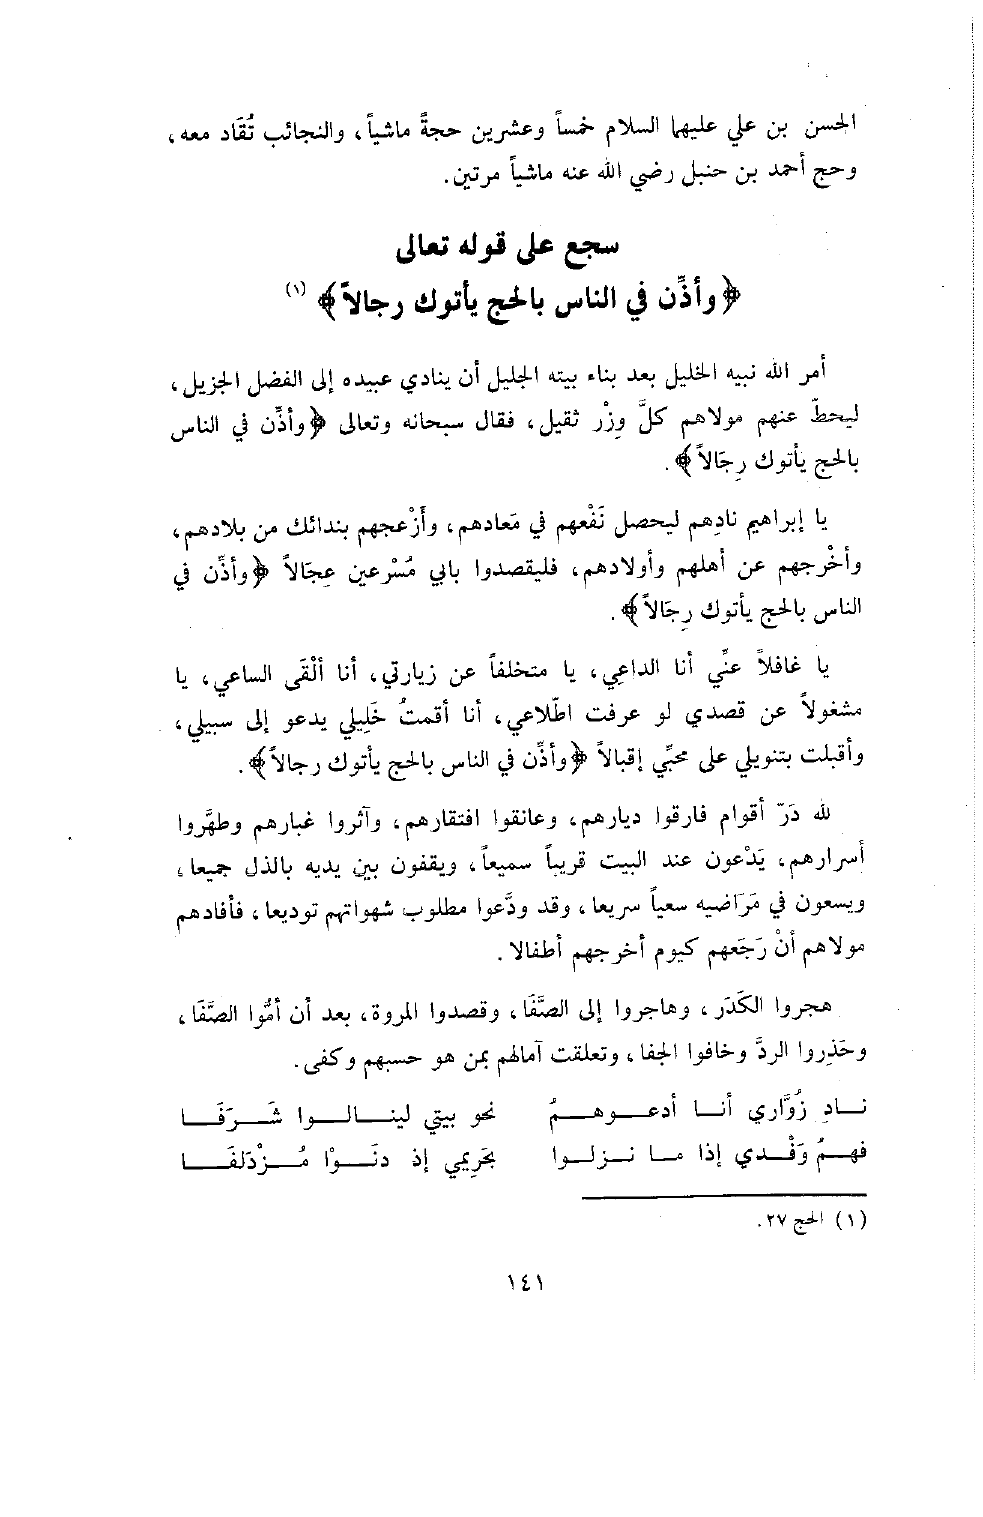 الحسن بن علي عليهما السلام خمساً وعشرين حجةً ماشياً، والنجائب تُقَاد معه،
وحج أحمد بن حنبل رضي الله عنه ماشياً مرتين.
سجع على قوله تعالى
﴿وأذِّن في الناس بالحج يأتوك رجالاً﴾ (١)
أمر الله نبيه الخليل بعد بناء بيته الجليل أن ينادي عبيده إلى الفضل الجزيل،
ليحطّ عنهم مولاهم كلَّ وِزْر ثقيل، فقال سبحانه وتعالى ﴿وأذِّن في الناس
بالحج يأتوك رِجَالاً﴾.
يا إبراهيم نادِهم ليحصل نَفْعهم في مَعادهم، وأَزْعجهم بندائك من بلادهم،
وأخْرجهم عن أهلهم وأولادهم، فليقصدوا بابي مُسْرعين عِجَالاً ﴿وأذِّن في
الناس بالحج يأتوك رِجَالاً﴾.
يا غافلاً عنِّي أنا الداعِي، يا متخلفاً عن زيارتي، أنا ألْقَى الساعي، يا
مشغولاً عن قصدي لو عرفت اطّلاعي، أنا أقمتُ خَلِيلي يدعو إلى سبيلي،
وأقبلت بتنويلي على محبِّي إقبالاً ﴿وأذِّن في الناس بالحج يأتوك رجالاً﴾.
لله دَرّ أقوام فارقوا ديارهم، وعانقوا افتقارهم، وآثروا غبارهم وطهَّروا
أسرارهم، يَدْعون عند البيت قريباً سميعاً، ويقفون بين يديه بالذل جميعا،
ويسعون في مَرَاضيه سعياً سريعا، وقد ودَّعوا مطلوب شهواتهم توديعا، فأفادهم
مولاهم أنْ رَجَعهم كيوم أخرجهم أطفالا.
هجروا الكَدَر، وهاجروا إلى الصَّفَا، وقصدوا المروة، بعد أن أمُّوا الصَّفَا،
وحَذِروا الردَّ وخافوا الجفا، وتعلقت آمالهم بمن هو حسبهم وكفى.
نـاد زُوَّاري أنـا أدعـوهـمُ نحو بيتي لينـالـوا شَـرَفَـا
فهـمُ وَفْـدي إذا مـا نـزلـوا بحَرِيمي إذ دنَـوْا مُـزْدَلفَـا
(١) الحج ٢٧.
١٤١